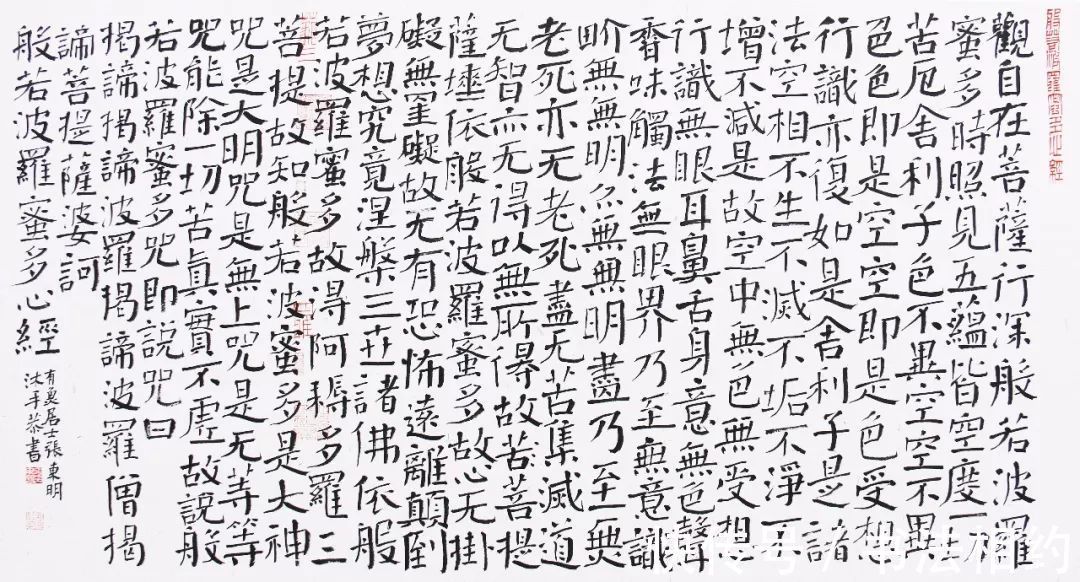 般若波羅蜜多心經
觀自在菩薩行深般若波羅
蜜多時照見五蘊皆空度一
苦厄舍利子色不異空空不異
色色即是空空即是色受想
行識亦復如是舍利子是諸
法空相不生不滅不垢不淨不
增不減是故空中無色無受想
行識無眼耳鼻舌身意無色聲
香味觸法無眼界乃至無意識
界無無明亦無無明盡乃至無
老死亦无老死盡无苦集滅道
无智亦无得以無所得故菩提
薩埵依般若波羅蜜多故心无掛
礙無罣礙故无有恐怖遠離顛倒
夢想究竟涅槃三世諸佛依般
若波羅蜜多故得阿耨多羅三
菩提故知般若波蜜多是大神
咒是大明咒是無上咒是无等等
咒能除一切苦真實不虛故說般
若波羅蜜多咒即說咒曰
揭諦揭諦波羅揭諦波羅僧揭
諦菩提薩婆訶
般若波羅蜜多心經
居士張東明
沐手恭書
号/书法相约